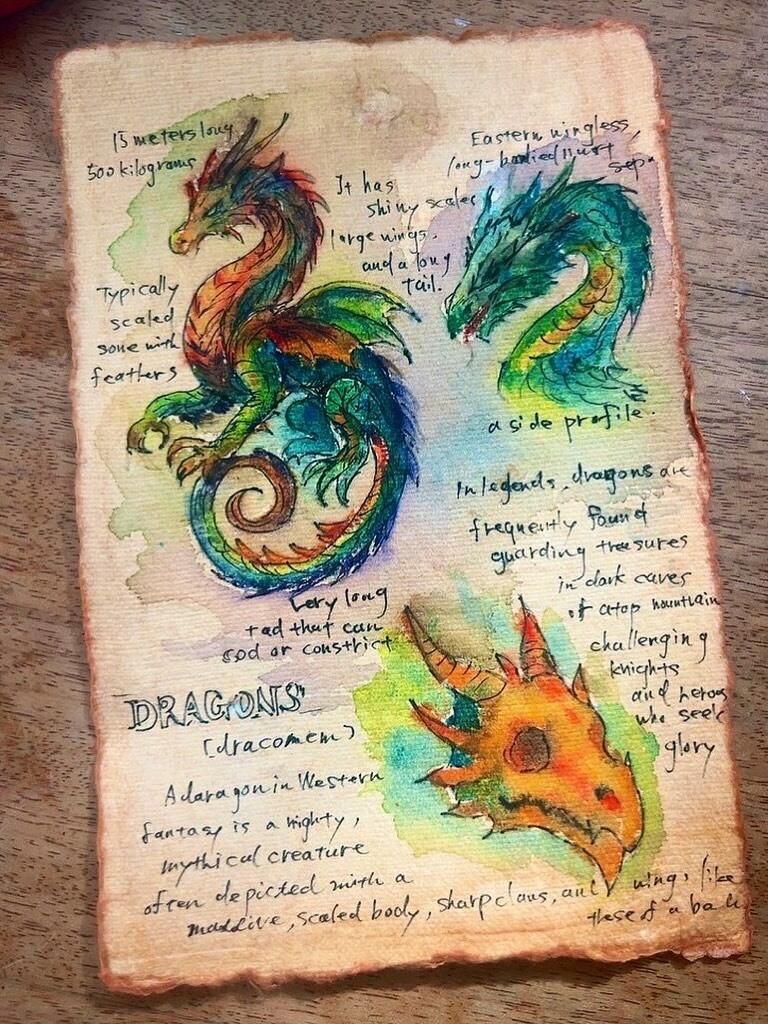 15 meters long
500 kilograms
It has
shiny scales
large wings.
and a long
tail.
Eastern wingless,
long-bodied
Typically
scaled
some with
feathers
a side profile.
In legends, dragons are
frequently found
guarding treasures
in dark caves
of atop mountain
challenging
knights
and heroes
who seek
glory
Very long
tad that can
or constrict
DRAGONS
(dracomem)
A daragon in Western
fantasy is a mighty,
mythical creature
often depicted with a
massive, scaled body, sharp claws, and wings like
those of a